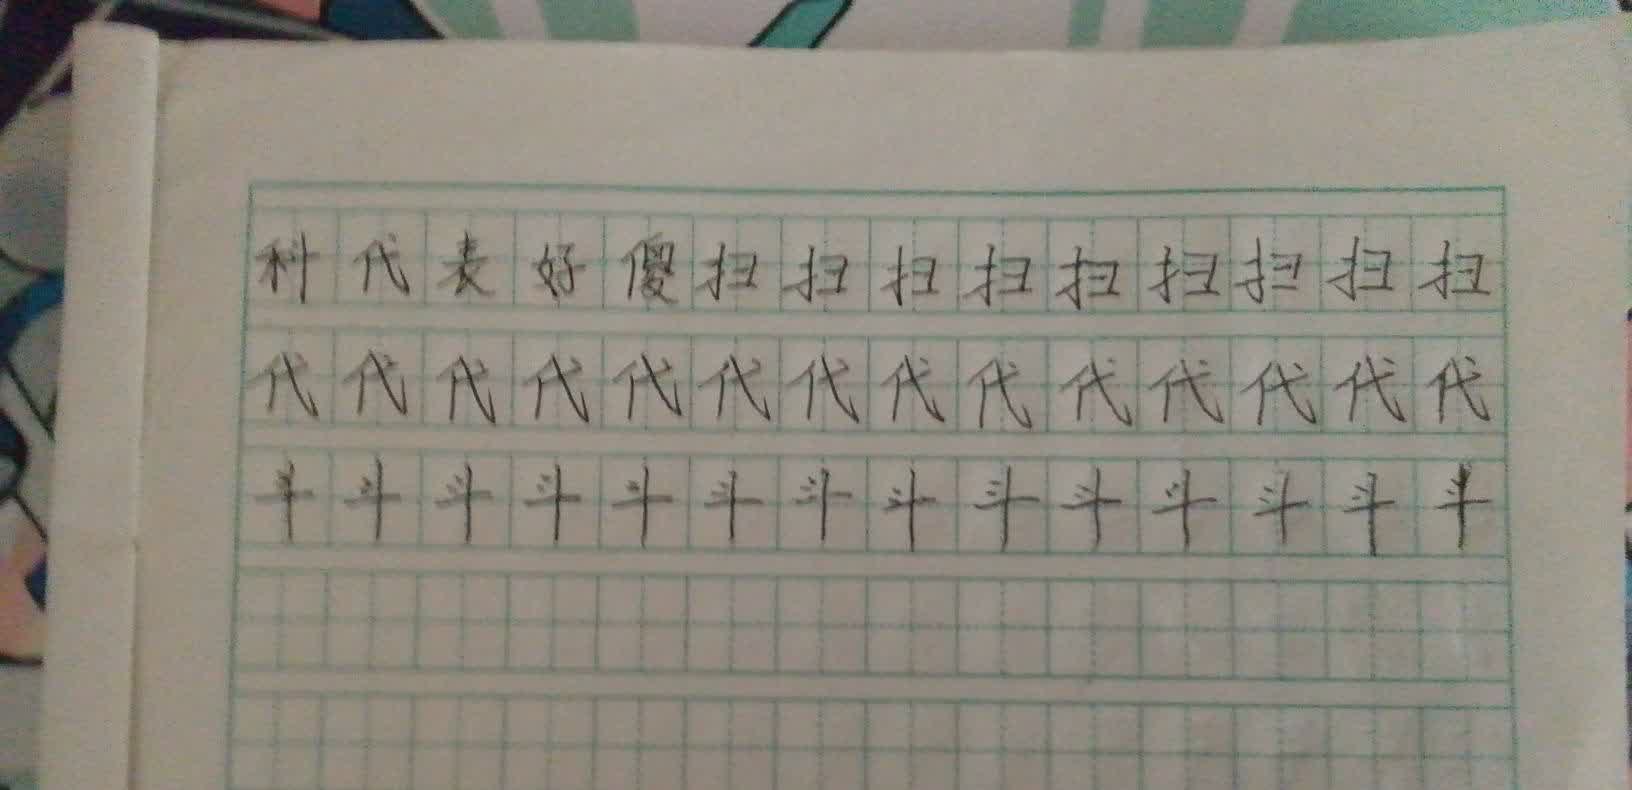 科代表好傻扫扫扫扫扫扫扫扫扫
代代代代代代代代代代代代代代
斗斗斗斗斗斗斗斗斗斗斗斗斗斗